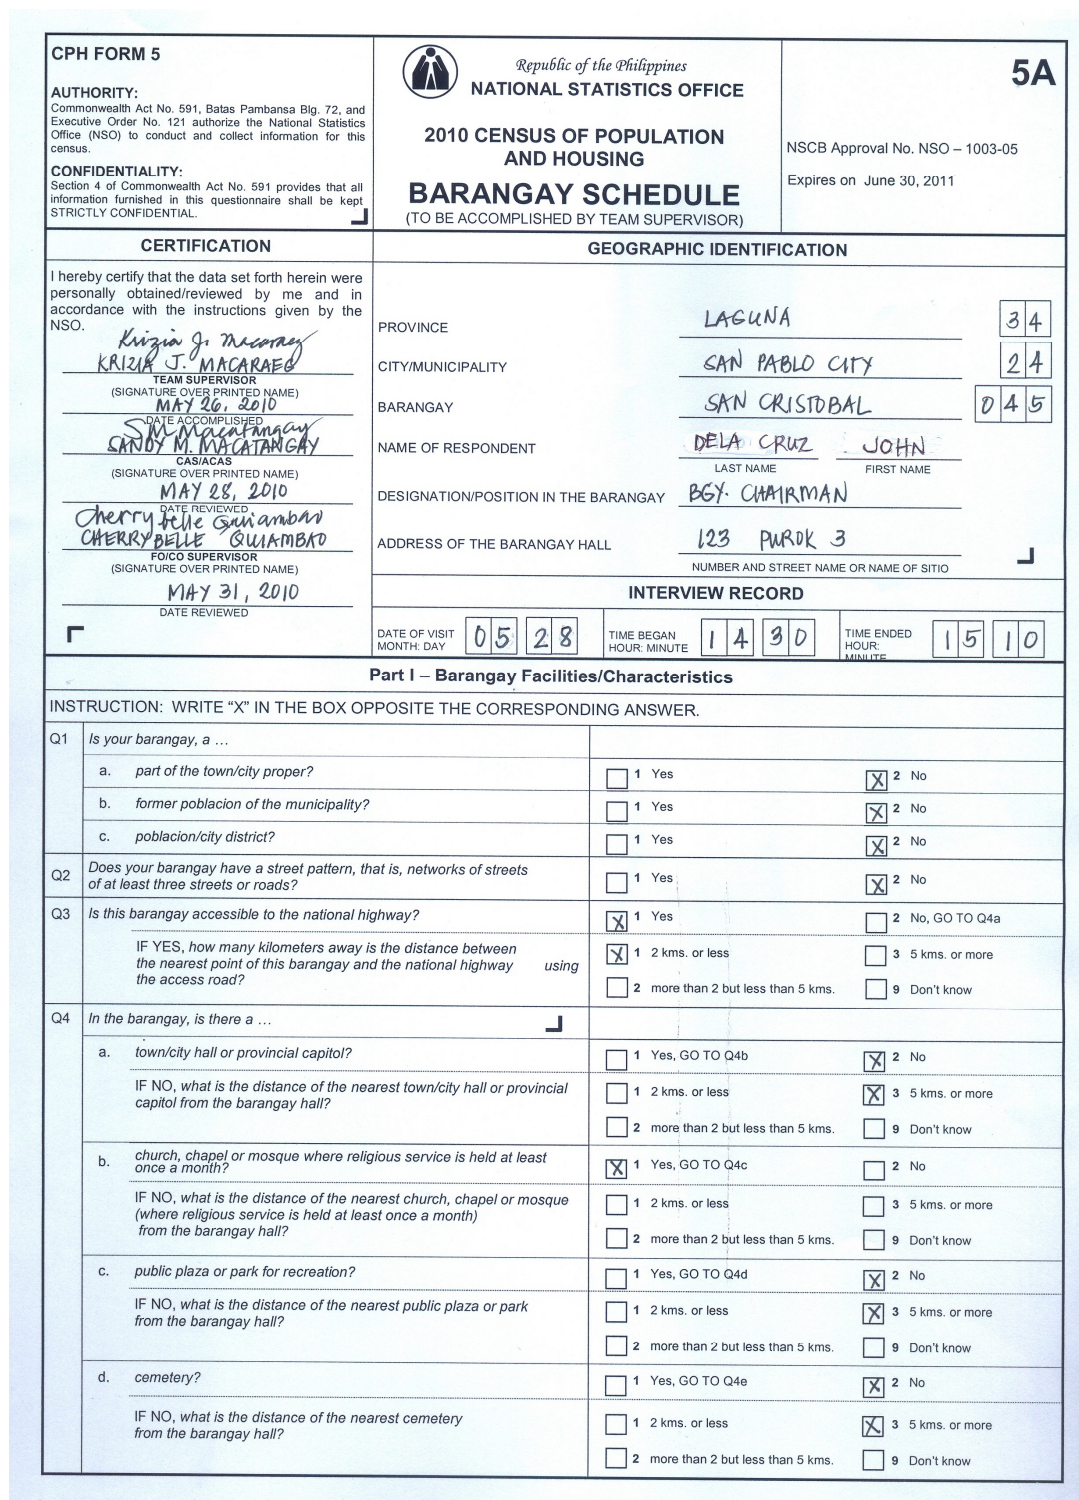 CPH FORM 5
AUTHORITY:
Commonwealth Act No. 591, Batas Pambansa Blg. 72, and
Executive Order No. 121 authorize the National Statistics
Office (NSO) to conduct and collect information for this
census.
CONFIDENTIALITY:
Section 4 of Commonwealth Act No. 591 provides that all
information furnished in this questionnaire shall be kept
STRICTLY CONFIDENTIAL.
Republic of the Philippines
NATIONAL STATISTICS OFFICE
2010 CENSUS OF POPULATION
AND HOUSING
BARANGAY SCHEDULE
(TO BE ACCOMPLISHED BY TEAM SUPERVISOR)
5A
NSCB Approval No. NSO – 1003-05
Expires on June 30, 2011
CERTIFICATION
I hereby certify that the data set forth herein were
personally obtained/reviewed by me and in
accordance with the instructions given by the
NSO.
Krizia J. Macaraeg
KRIZIA J. MACARAEG
TEAM SUPERVISOR
(SIGNATURE OVER PRINTED NAME)
MAY 26, 2010
DATE ACCOMPLISHED
SM Macatangay
SANDY M. MACATANGAY
CAS/ACAS
(SIGNATURE OVER PRINTED NAME)
MAY 28, 2010
DATE REVIEWED
Cherrybelle Quiambao
CHERRYBELLE QUIAMBAO
FO/CO SUPERVISOR
(SIGNATURE OVER PRINTED NAME)
MAY 31, 2010
DATE REVIEWED
GEOGRAPHIC IDENTIFICATION
PROVINCE LAGUNA 34
CITY/MUNICIPALITY SAN PABLO CITY 24
BARANGAY SAN CRISTOBAL 045
NAME OF RESPONDENT DELA CRUZ JOHN
LAST NAME FIRST NAME
DESIGNATION/POSITION IN THE BARANGAY BGY. CHAIRMAN
ADDRESS OF THE BARANGAY HALL 123 PUROK 3
NUMBER AND STREET NAME OR NAME OF SITIO
INTERVIEW RECORD
DATE OF VISIT
MONTH: DAY
05 28
TIME BEGAN
HOUR: MINUTE
14 30
TIME ENDED
HOUR:
MINUTE
15 10
Part I – Barangay Facilities/Characteristics
INSTRUCTION: WRITE “X” IN THE BOX OPPOSITE THE CORRESPONDING ANSWER.
Q1 Is your barangay, a ...
a. part of the town/city proper? 1 Yes X 2 No
b. former poblacion of the municipality? 1 Yes X 2 No
c. poblacion/city district? 1 Yes X 2 No
Q2 Does your barangay have a street pattern, that is, networks of streets
of at least three streets or roads? 1 Yes X 2 No
Q3 Is this barangay accessible to the national highway? X 1 Yes 2 No, GO TO Q4a
IF YES, how many kilometers away is the distance between
the nearest point of this barangay and the national highway using
the access road?
X 1 2 kms. or less 3 5 kms. or more
2 more than 2 but less than 5 kms. 9 Don't know
Q4 In the barangay, is there a ...
a. town/city hall or provincial capitol? 1 Yes, GO TO Q4b X 2 No
IF NO, what is the distance of the nearest town/city hall or provincial
capitol from the barangay hall?
1 2 kms. or less X 3 5 kms. or more
2 more than 2 but less than 5 kms. 9 Don't know
b. church, chapel or mosque where religious service is held at least
once a month? X 1 Yes, GO TO Q4c 2 No
IF NO, what is the distance of the nearest church, chapel or mosque
(where religious service is held at least once a month)
from the barangay hall?
1 2 kms. or less 3 5 kms. or more
2 more than 2 but less than 5 kms. 9 Don't know
c. public plaza or park for recreation? 1 Yes, GO TO Q4d X 2 No
IF NO, what is the distance of the nearest public plaza or park
from the barangay hall?
1 2 kms. or less X 3 5 kms. or more
2 more than 2 but less than 5 kms. 9 Don't know
d. cemetery? 1 Yes, GO TO Q4e X 2 No
IF NO, what is the distance of the nearest cemetery
from the barangay hall?
1 2 kms. or less X 3 5 kms. or more
2 more than 2 but less than 5 kms. 9 Don't know